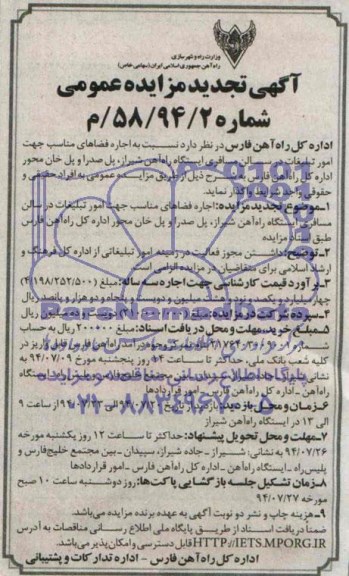 وزارت راه و شهرسازی
راه آهن جمهوری اسلامی ایران (سهامی خاص)
آگهی تجدید مزایده عمومی
شماره ۵۸/۹۴/۲/م
اداره کل راه آهن فارس در نظر دارد نسبت به اجاره فضاهای مناسب جهت
امور تبلیغات در سالن مسافری ایستگاه راه آهن شیراز، پل صدرا و پل خان محور
اداره کل راه آهن فارس به شرح ذیل از طریق مزایده عمومی به افراد حقیقی و
حقوقی واجد شرایط واگذار نماید.
۱-موضوع تجدید مزایده: اجاره فضاهای مناسب جهت امور تبلیغات در سالن
مسافری ایستگاه راه آهن شیراز، پل صدرا و پل خان محور اداره کل راه آهن فارس
طبق اسناد مزایده
۲-توضیح: داشتن مجوز فعالیت در زمینه امور تبلیغاتی از اداره کل فرهنگ و
ارشاد اسلامی برای متقاضیان در مزایده الزامی است
۳-برآورد قیمت کارشناسی جهت اجاره سه ساله: مبلغ (۴/۱۹۸/۲۵۲/۵۰۰)
چهار میلیارد و یکصد و نود و هشت میلیون و دویست و پنجاه و دو هزار و پانصد ریال
۴-سپرده شرکت در مزایده: مبلغ ریال
۵-مبلغ خرید، مهلت و محل دریافت اسناد: مبلغ ۲۰۰۰۰۰ ریال به حساب
کلیه شعب بانک ملی، حداکثر تا ساعت ۱۳ روز پنجشنبه مورخ ۹۴/۰۷/۰۹ به
راه آهن - اداره کل راه آهن فارس - امور قراردادها
۶-زمان و محل بازدید: از ساعت ۹
الی ۱۳ در ایستگاه راه آهن شیراز
۷-مهلت و محل تحویل پیشنهاد: حداکثر تا ساعت ۱۲ روز یکشنبه مورخه
۹۴/۰۷/۲۶ به نشانی: شیراز - جاده شیراز، سپیدان - بین مجتمع خلیج فارس و
پلیس راه - ایستگاه راه آهن - اداره کل راه آهن فارس - امور قراردادها
۸-زمان تشکیل جلسه بازگشایی پاکت ها: روز دوشنبه ساعت ۱۰ صبح
مورخه ۹۴/۰۷/۲۷
۹-هزینه چاپ و نشر دو نوبت آگهی به عهده برنده مزایده می باشد.
ضمناً دریافت اسناد از طریق پایگاه ملی اطلاع رسانی مناقصات به آدرس
HTTP://IETS.MPORG.IR قابل دسترسی و امکان پذیر می باشد.
اداره کل راه آهن فارس - اداره تدارکات و پشتیبانی